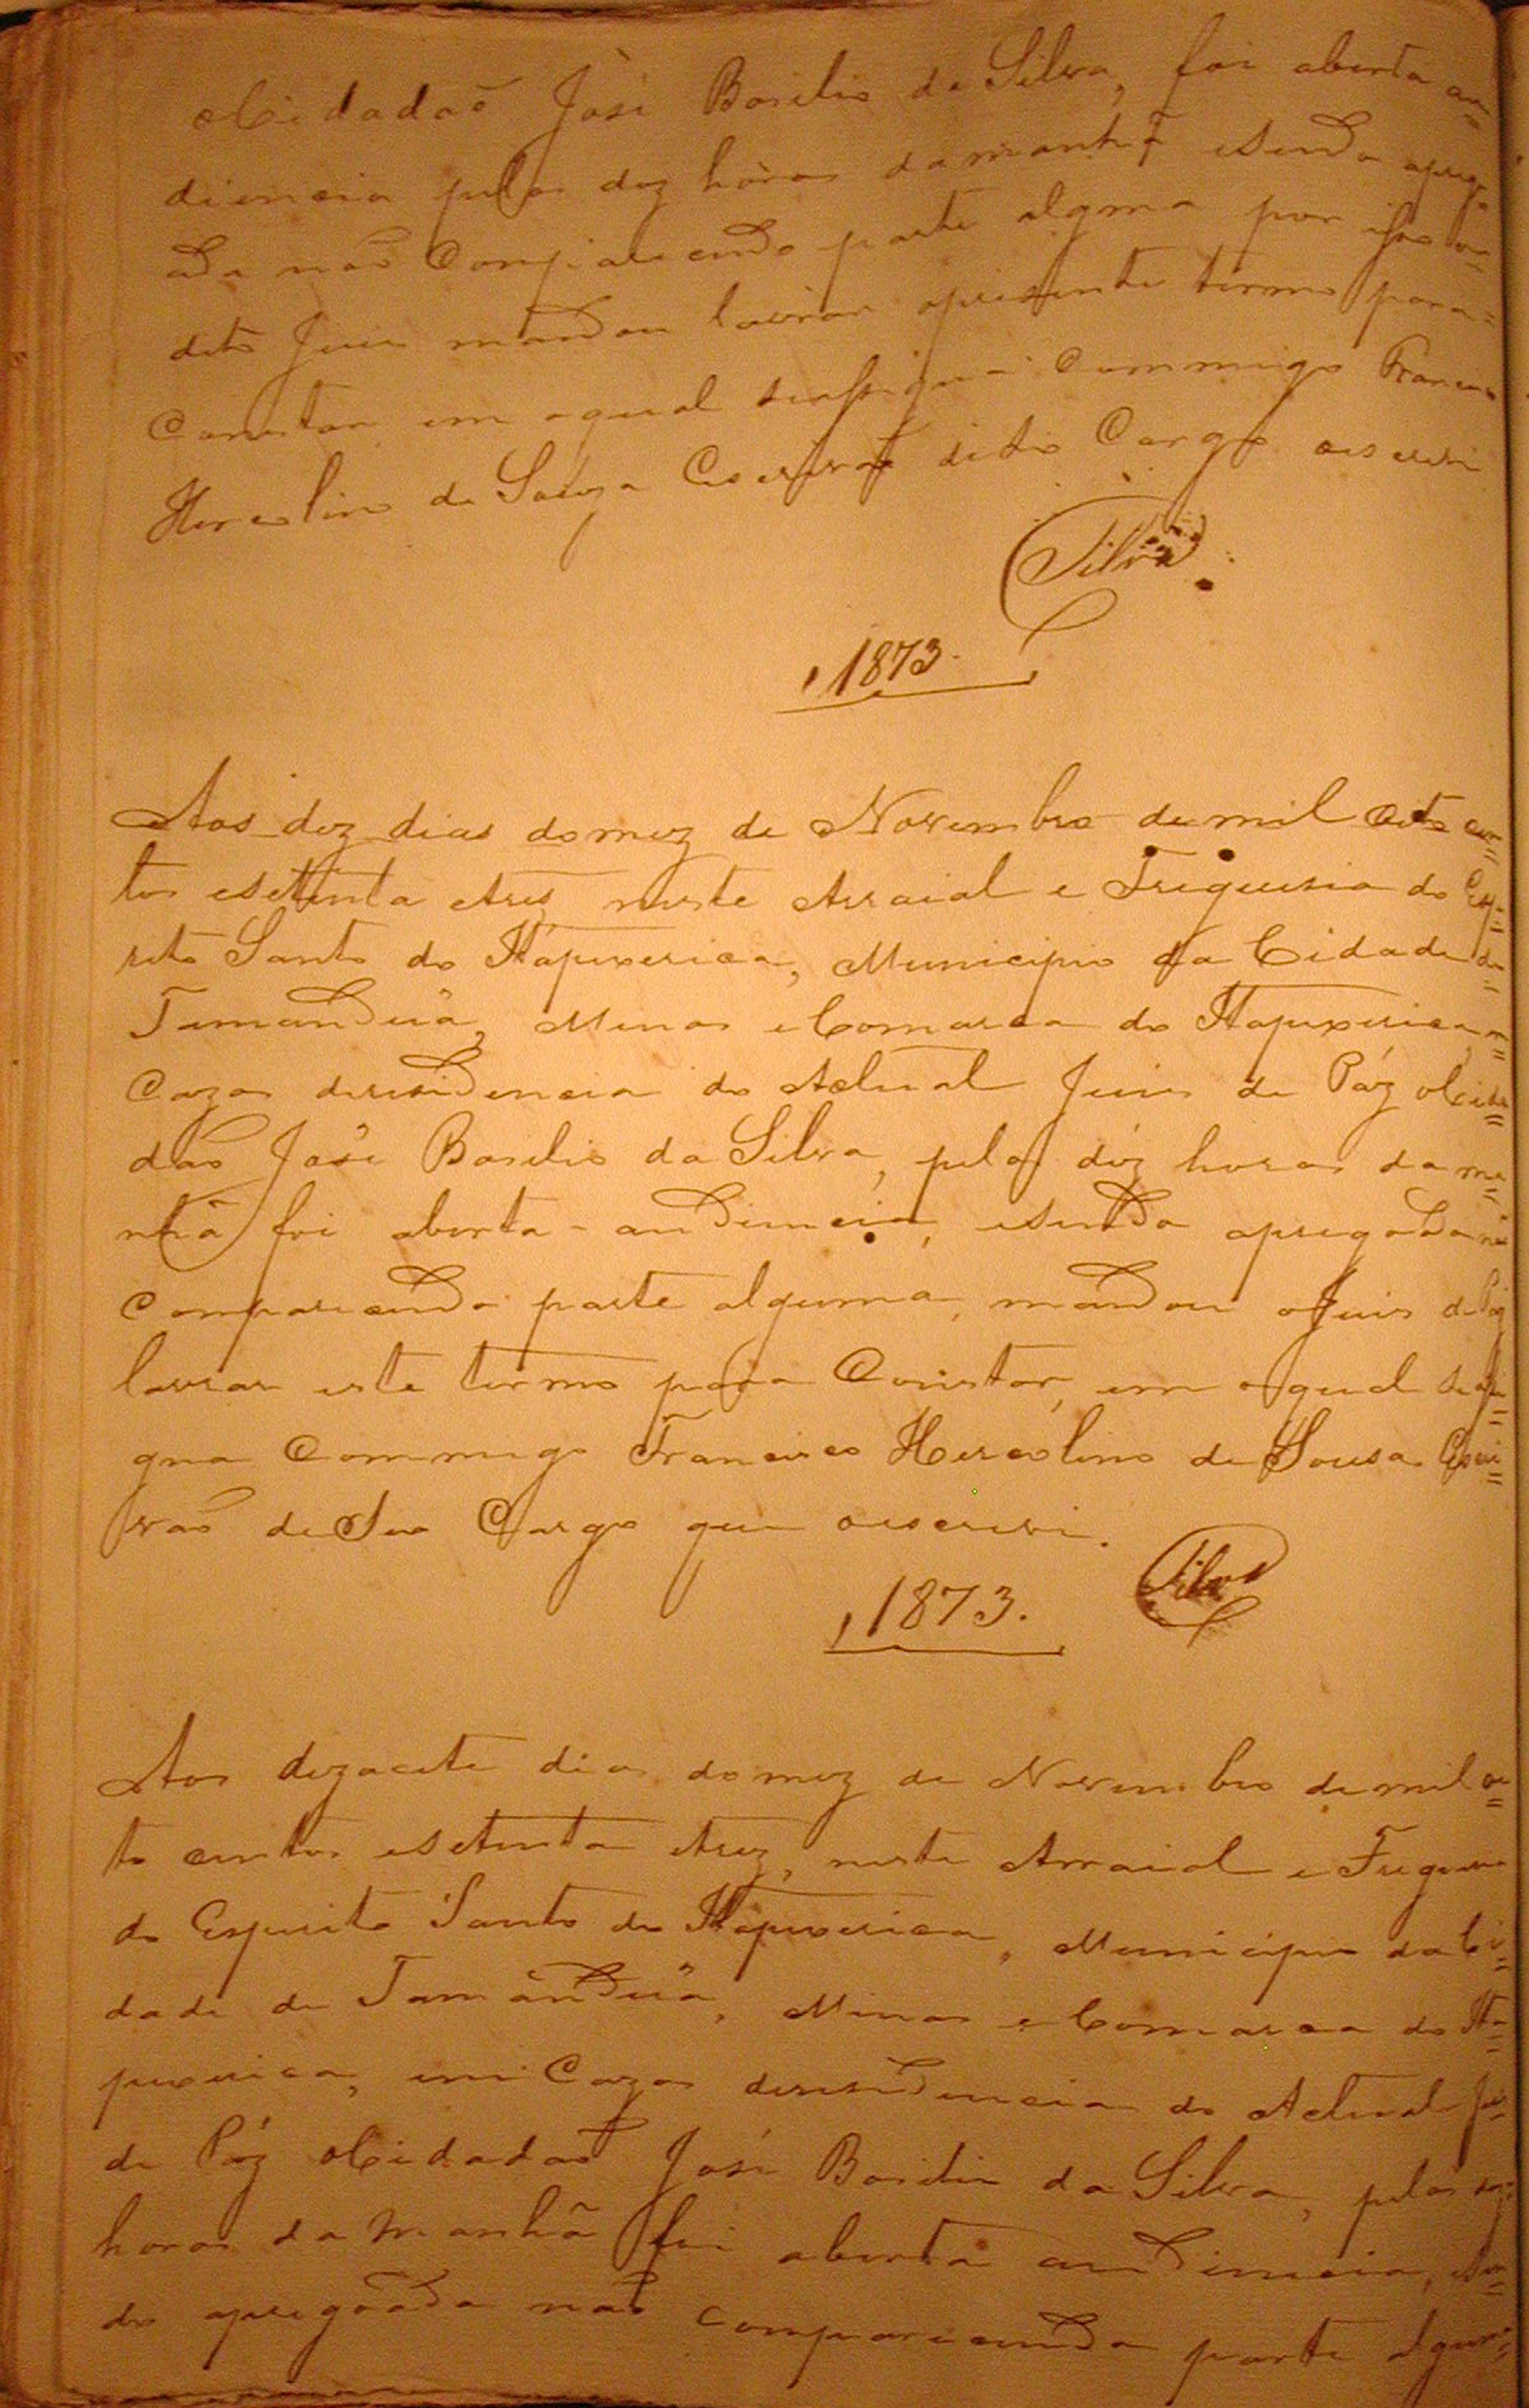 oCidadaõ José Basilio da Silva, foi aberta au=
diencia pelas dez hóras damanhã esendo aprego=
ada naõ Comparecendo parte algma por isso o=
dito Juis mandou lavrar opresente termo para=
Constar em oqual seassigna Commigo Francisco
Hercolino de Souza Escrivaõ deste Cargo oescrevi
Silva
1873.
Aos dez dias domez de Novembro demil oito cen=
tos esetenta etres neste Arraial e Freguesia do Esp=
rito Santo do Itapixerica, Municipio da Cidade de=
Tamanduá, Minas eComarca do Itapixerica, e=
Cazas deresidencia do Actual Juis de Páz oCida=
dão José Basilio da Silva, pelas déz horas da ma=
nhã foi aberta audiencia, esendo apregoada naõ
Comparecendo parte alguma, mandou oJuis de Páz
lavrar este termo para Constar, em oqual seassi=
gna Commigo Francisco Hercolino de Sousa Escri=
vaõ de Seo Cargo que oescrevi.
Silva
1873.
Aos dezacete dias domez de Novembro demil oi=
to centos esetenta etrez, neste Arraial e Freguesia
do Espirito Santo do Itapixerica, Municipio da Ci=
dade de Tamanduá, Minas eComarca do Ita=
pixerica, emCazas deresidencia do Actual Juis
de Páz oCidadaõ José Basilio da Silva, pelas dez
horas da manhã foi aberta audiencia, esen=
do apregoada naõ comparecendo parte algum=